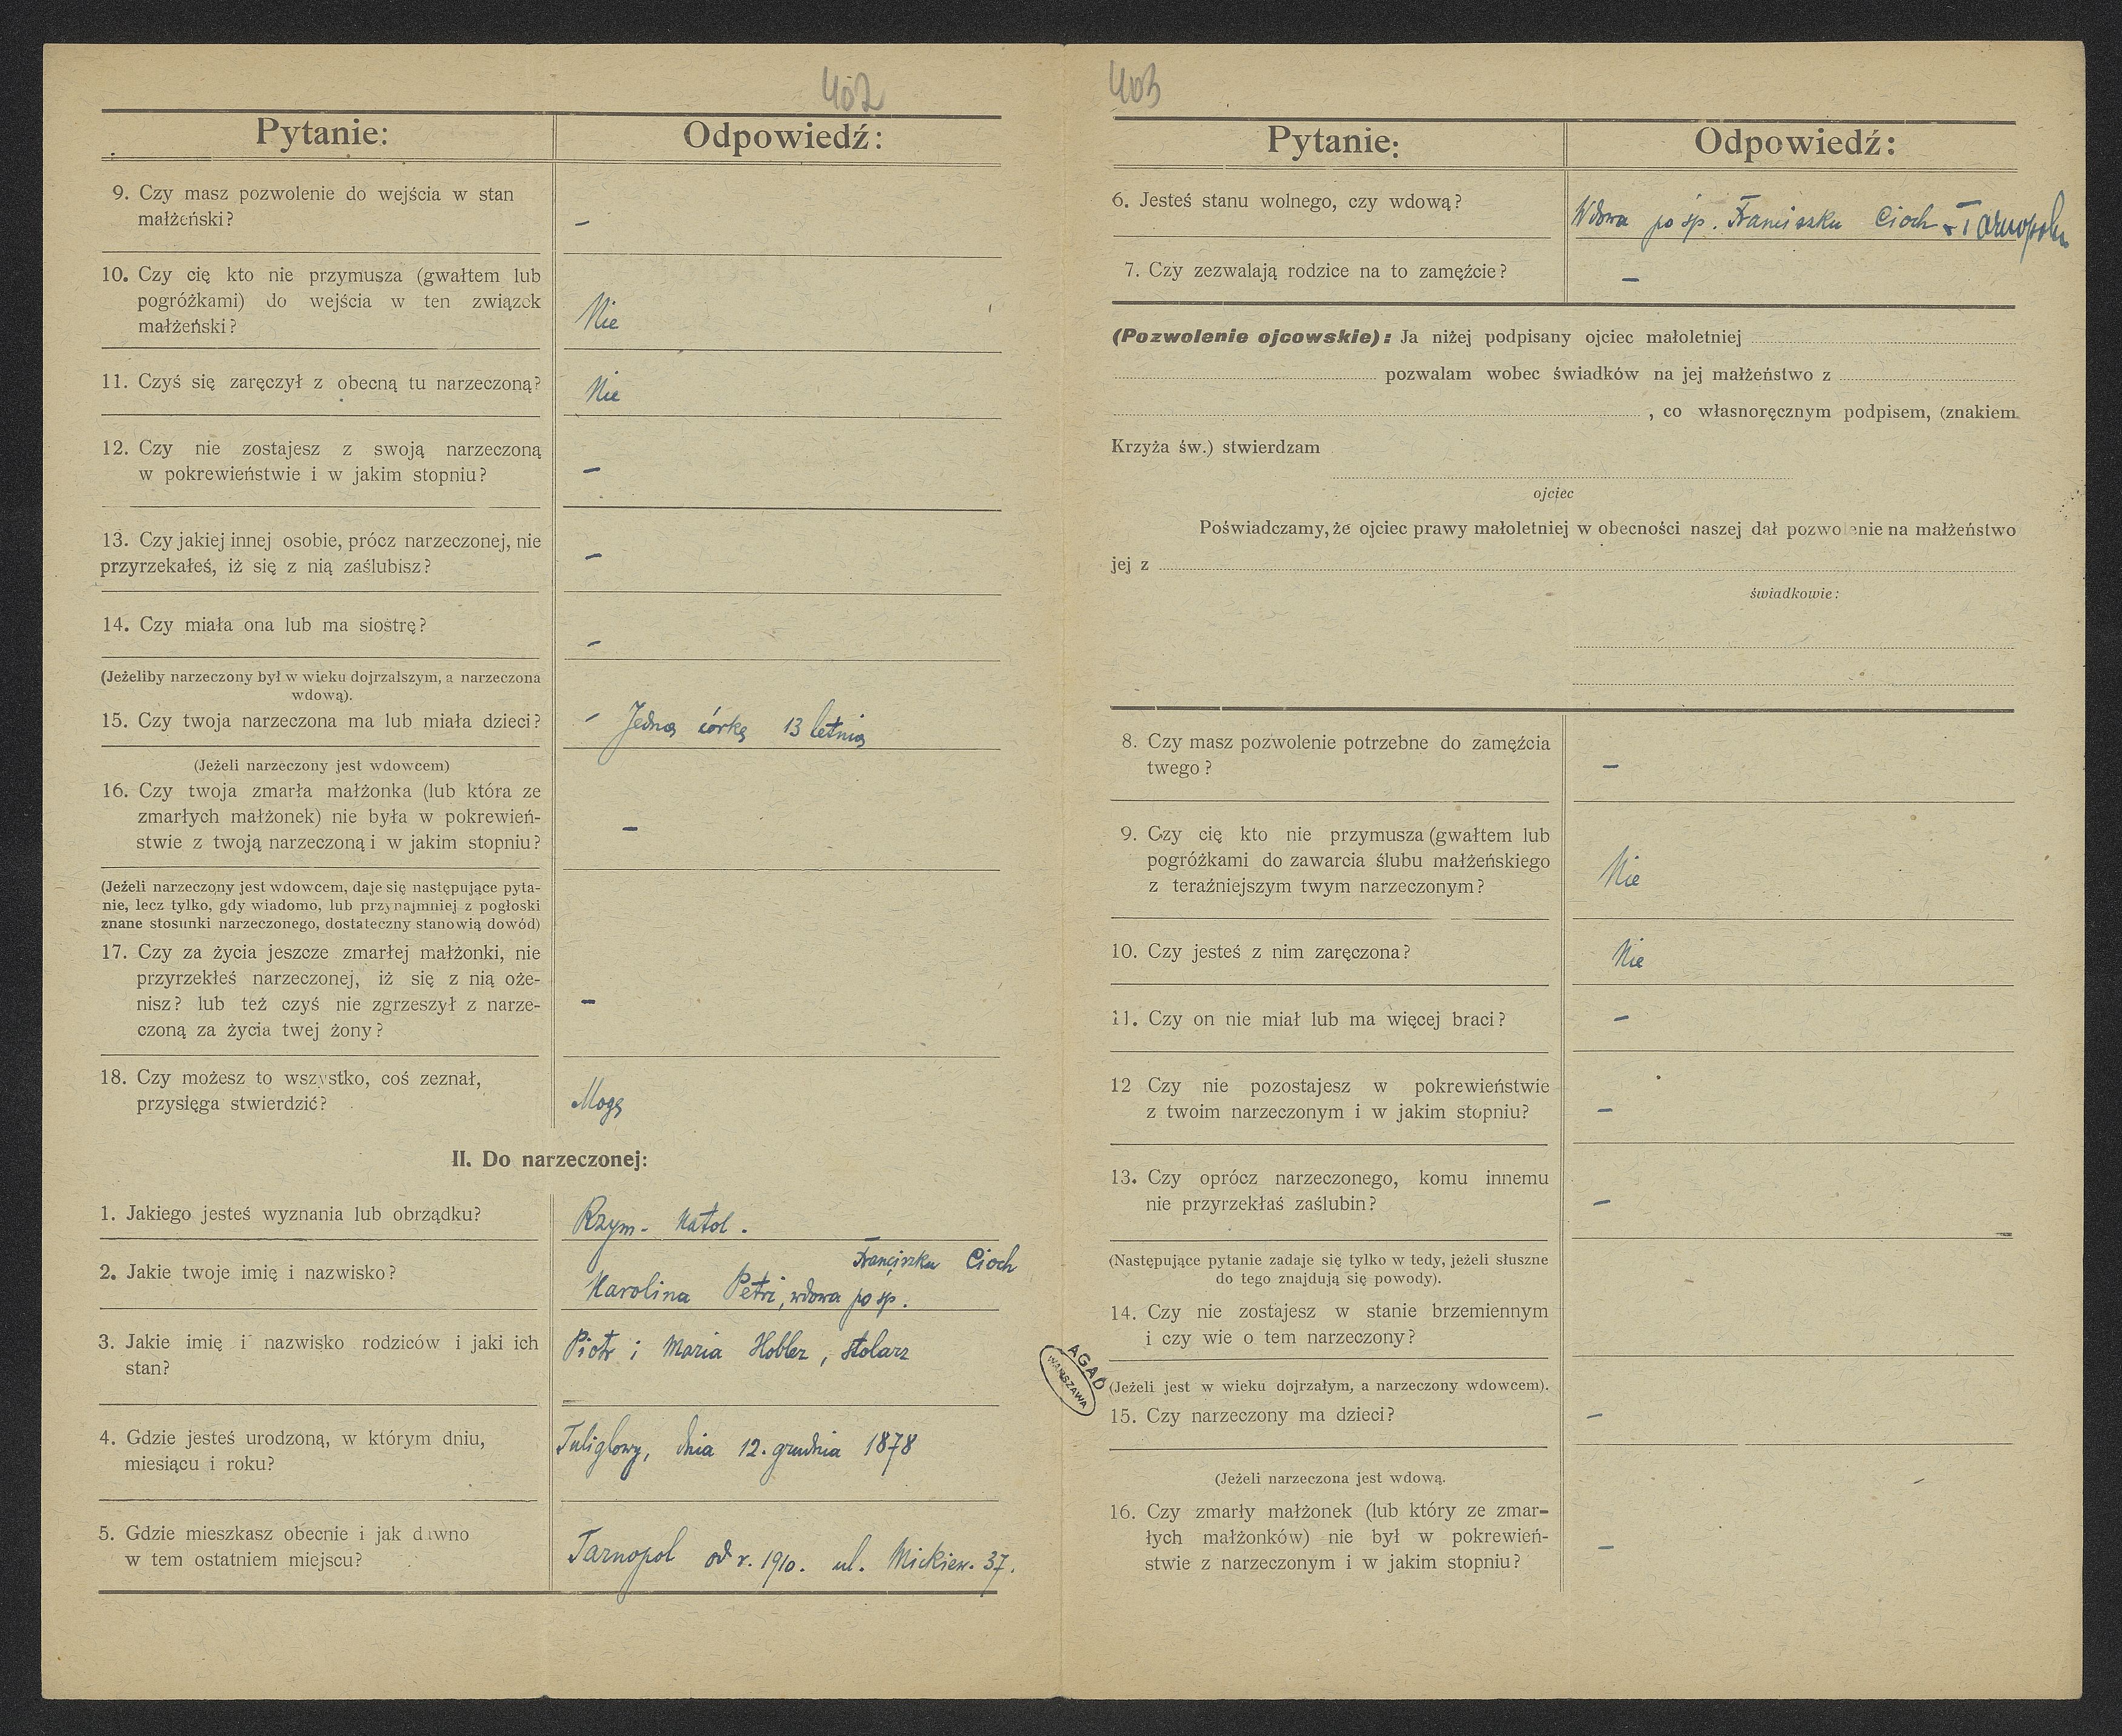 402
Pytanie:
Odpowiedź:
9. Czy masz pozwolenie do wejścia w stan
małżeński?
–
10. Czy cię kto nie przymusza (gwałtem lub
pogróżkami) do wejścia w ten związek
małżeński?
Nie
11. Czyś się zaręczył z obecną tu narzeczoną?
Nie
12. Czy nie zostajesz z swoją narzeczoną
w pokrewieństwie i w jakim stopniu?
–
13. Czy jakiej innej osobie, prócz narzeczonej, nie
przyrzekałeś, iż się z nią zaślubisz?
–
14. Czy miała ona lub ma siostrę?
–
(Jeżeliby narzeczony był w wieku dojrzalszym, a narzeczona
wdową).
15. Czy twoja narzeczona ma lub miała dzieci?
– Jedną córkę 13 letnią
(Jeżeli narzeczony jest wdowcem)
16. Czy twoja zmarła małżonka (lub która ze
zmarłych małżonek) nie była w pokrewień-
stwie z twoją narzeczoną i w jakim stopniu?
–
(Jeżeli narzeczony jest wdowcem, daje się następujące pyta-
nie, lecz tylko, gdy wiadomo, lub przynajmniej z pogłoski
znane stosunki narzeczonego, dostateczny stanowią dowód)
17. Czy za życia jeszcze zmarłej małżonki, nie
przyrzekłeś narzeczonej, iż się z nią oże-
nisz? lub też czyś nie zgrzeszył z narze-
czoną za życia twej żony?
–
18. Czy możesz to wszystko, coś zeznał,
przysięga stwierdzić?
Mogę
II. Do narzeczonej:
1. Jakiego jesteś wyznania lub obrządku?
Rzym- Katol.
2. Jakie twoje imię i nazwisko?
Franciszku Cioch
Karolina Petri, wdowa po śp.
3. Jakie imię i nazwisko rodziców i jaki ich
stan?
Piotr i Maria Hobler, stolarz
4. Gdzie jesteś urodzoną, w którym dniu,
miesiącu i roku?
Tuligłowy, dnia 12. grudnia 1878
5. Gdzie mieszkasz obecnie i jak dawno
w tem ostatniem miejscu?
Tarnopol od r. 1910. ul. Mickiew. 37.
403
Pytanie:
Odpowiedź:
6. Jesteś stanu wolnego, czy wdową?
Wdowa po śp. Franciszku Cioch z Tarnopola
7. Czy zezwalają rodzice na to zamęźcie?
–
(Pozwolenie ojcowskie): Ja niżej podpisany ojciec małoletniej
pozwalam wobec świadków na jej małżeństwo z
, co własnoręcznym podpisem, (znakiem
Krzyża św.) stwierdzam
ojciec
Poświadczamy, że ojciec prawy małoletniej w obecności naszej dał pozwolenie na małżeństwo
jej z
świadkowie:
8. Czy masz pozwolenie potrzebne do zamęźcia
twego?
–
9. Czy cię kto nie przymusza (gwałtem lub
pogróżkami do zawarcia ślubu małżeńskiego
z teraźniejszym twym narzeczonym?
Nie
10. Czy jesteś z nim zaręczona?
Nie
11. Czy on nie miał lub ma więcej braci?
–
12 Czy nie pozostajesz w pokrewieństwie
z twoim narzeczonym i w jakim stopniu?
–
13. Czy oprócz narzeczonego, komu innemu
nie przyrzekłaś zaślubin?
–
(Następujące pytanie zadaje się tylko w tedy, jeżeli słuszne
do tego znajdują się powody).
14. Czy nie zostajesz w stanie brzemiennym
i czy wie o tem narzeczony?
AGAD
WARSZAWA
(Jeżeli jest w wieku dojrzałym, a narzeczony wdowcem).
15. Czy narzeczony ma dzieci?
–
(Jeżeli narzeczona jest wdową.
16. Czy zmarły małżonek (lub który ze zmar-
łych małżonków) nie był w pokrewień-
stwie z narzeczonym i w jakim stopniu?
–